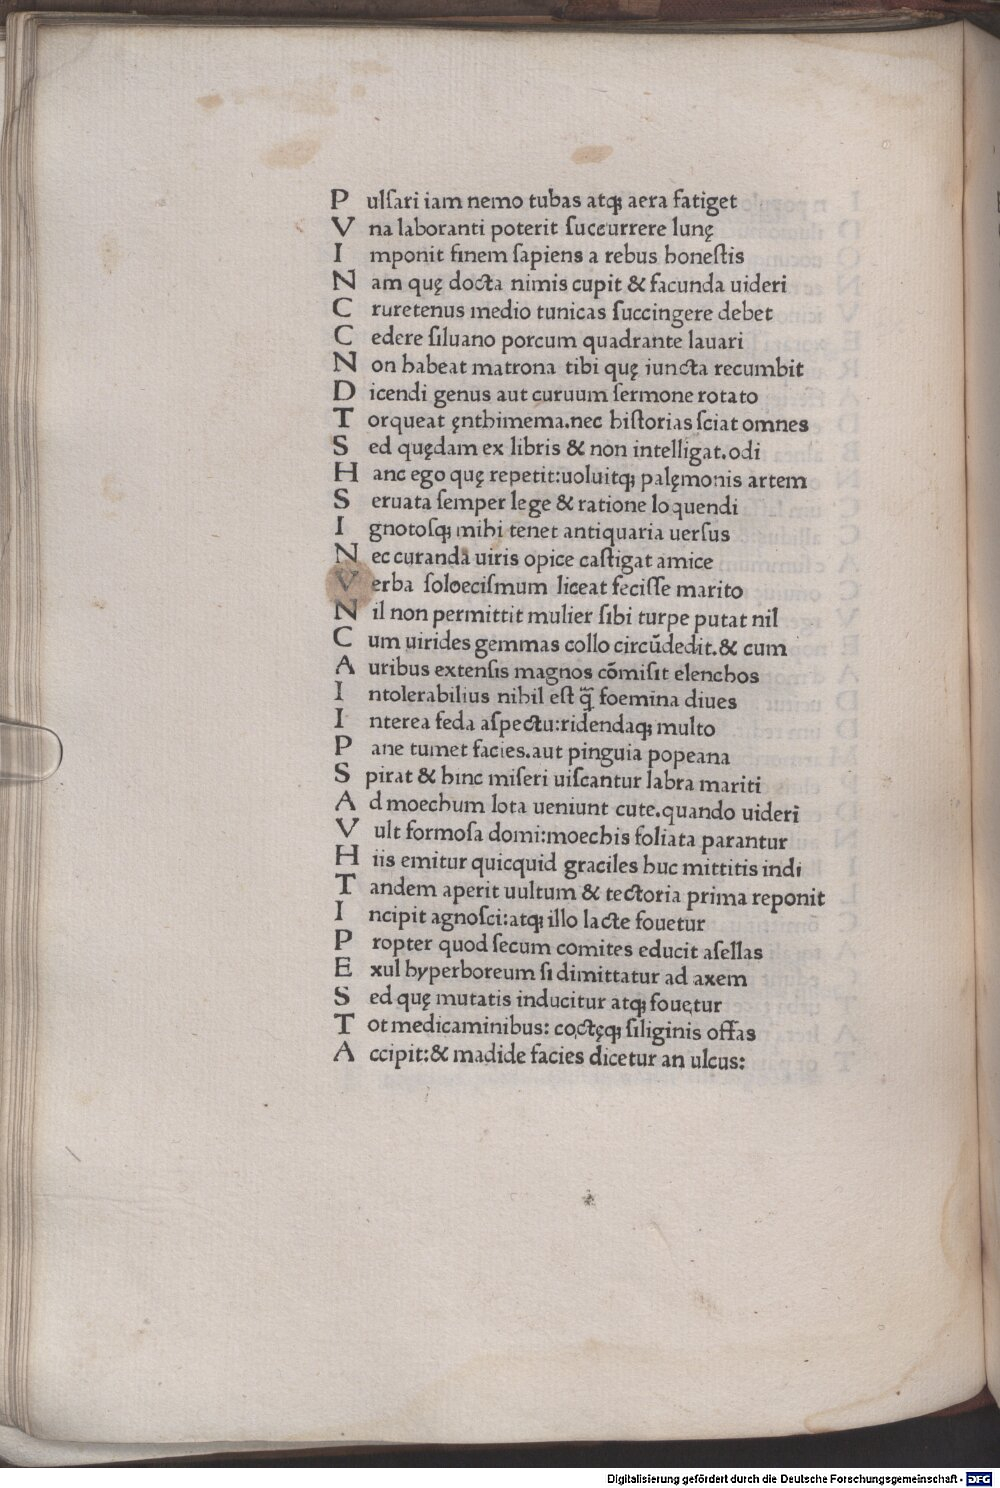 P ulſari iam nemo tubas atqꝫ aera fatiget
V na laboranti poterit ſuccurrere lunę
I mponit finem ſapiens a rebus honeſtis
N am quę docta nimis cupit & facunda uideri
C ruretenus medio tunicas ſuccingere debet
C edere ſiluano porcum quadrante lauari
N on habeat matrona tibi quę iuncta recumbit
D icendi genus aut curuum ſermone rotato
T orqueat ęnthimema.nec hiſtorias ſciat omnes
S ed quędam ex libris & non intelligat.odi
H anc ego quę repetit:uoluitqꝫ palęmonis artem
S eruata ſemper lege & ratione loquendi
I gnotoſqꝫ mihi tenet antiquaria uerſus
N ec curanda uiris opice caſtigat amice
V erba ſoloeciſmum liceat feciſſe marito
N il non permittit mulier ſibi turpe putat nil
C um uirides gemmas collo circūdedit.& cum
A uribus extenſis magnos cōmiſit elenchos
I ntolerabilius nihil eſt q̄̃ foemina diues
I nterea feda aſpectu:ridendaqꝫ multo
P ane tumet facies.aut pinguia popeana
S pirat & hinc miſeri uiſcantur labra mariti
A d moechum lota ueniunt cute.quando uideri
V ult formoſa domi:moechis foliata parantur
H iis emitur quicquid graciles huc mittitis indi
T andem aperit uultum & tectoria prima reponit
I ncipit agnoſci:atqꝫ illo lacte fouetur
P ropter quod ſecum comites educit aſellas
E xul hyperboreum ſi dimittatur ad axem
S ed quę mutatis inducitur atqꝫ fouetur
T ot medicaminibus: coctęqꝫ ſiliginis offas
A ccipit:& madide facies dicetur an ulcus:
Digitalisierung gefördert durch die Deutsche Forschungsgemeinschaft - DFG